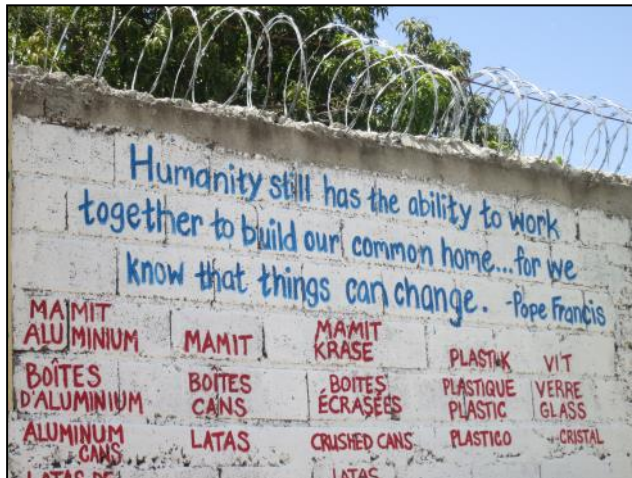 Humanity still has the ability to work
together to build our common home...for we
know that things can change. -Pope Francis
MAMIT
ALUMINIUM
BOÎTES
D'ALUMINIUM
ALUMINUM
CANS
LATAS DE
MAMIT
BOITES
CANS
LATAS
MAMIT
KRASE
BOITES
ÉCRASÉES
CRUSHED CANS
LATAS
PLASTIK
PLASTIQUE
PLASTIC
PLASTICO
VIT
VERRE
GLASS
CRISTAL